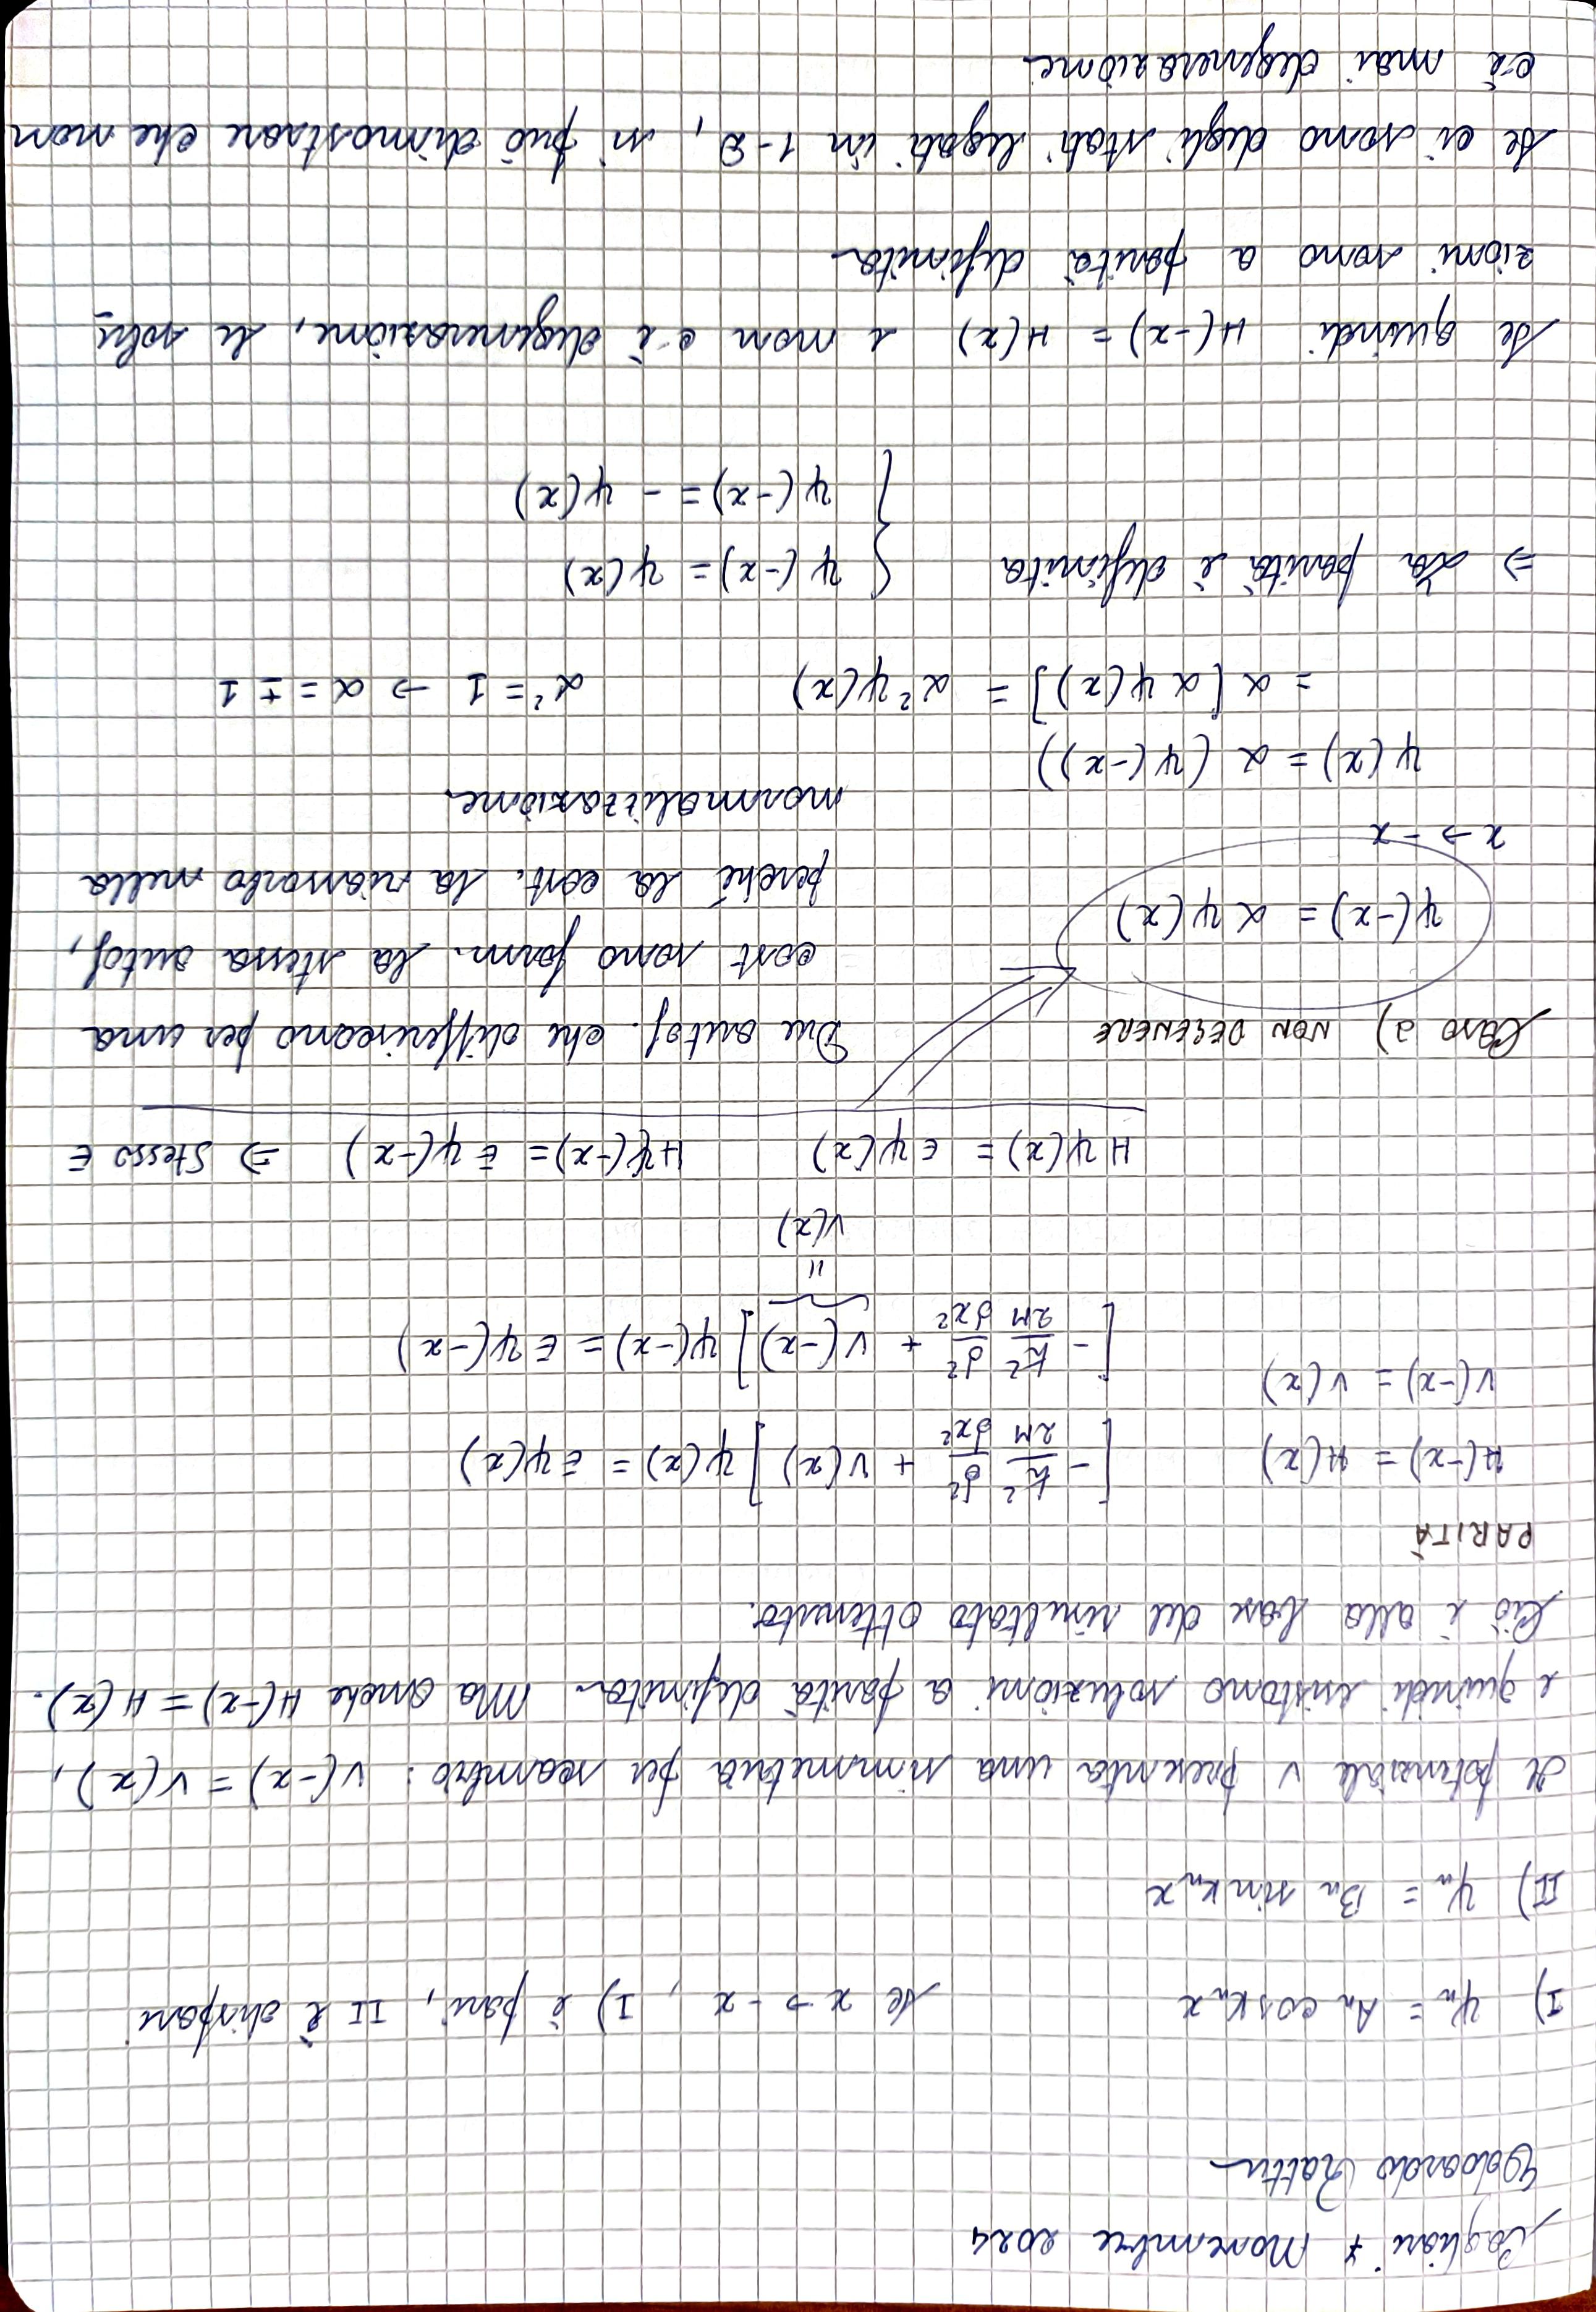 Cagliari 7 Novembre 2024
Edoardo Rattu
I) ψₙ = Aₙ cos kₙ x    Se x → -x , I) è pari, II è dispari
II) ψₙ = Bₙ sin kₙ x
Il potenziale V presenta una simmetria per scambio: V(-x) = V(x),
e quindi esistono soluzioni a parità definita. Ma anche H(-x) = H(x).
Ciò è alla base del risultato ottenuto.
PARITÀ
H(-x) = H(x)    [- ℏ²/2M d²/dx² + V(x)] ψ(x) = E ψ(x)
V(-x) = V(x)
[- ℏ²/2M d²/dx² + V(-x)] ψ(-x) = E ψ(-x)
=
V(x)
H ψ(x) = E ψ(x)    H ψ(-x) = E ψ(-x) ⇒ Stesso E
Caso a) NON DEGENERE    Due autof. che differiscono per una
cost sono form. la stessa autof,
ψ(-x) = α ψ(x)
perché la cost. la riassorbo nella
x → -x
normalizzazione.
ψ(x) = α (ψ(-x))
= α [α ψ(x)] = α² ψ(x)    α² = 1 → α = ± 1
⇒ La parità è definita    { ψ(-x) = ψ(x)
ψ(-x) = - ψ(x)
Se quindi H(-x) = H(x) e non c'è degenerazione, le solu
zioni sono a parità definita.
Se ci sono degli stati legati in 1-D, si può dimostrare che non
c'è mai degenerazione.